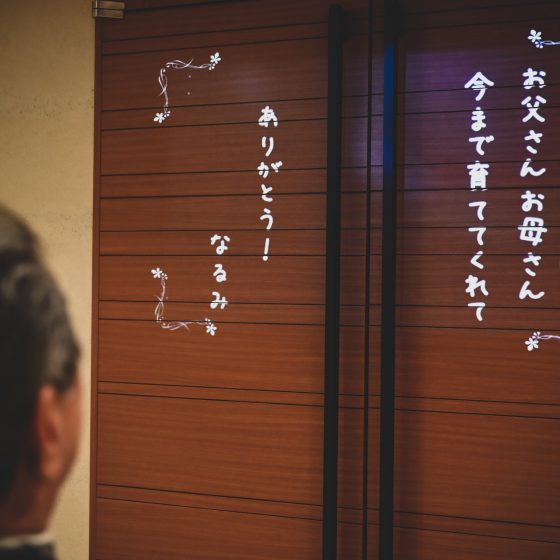 お父さんお母さん
今まで育ててくれて
ありがとう!
なるみ